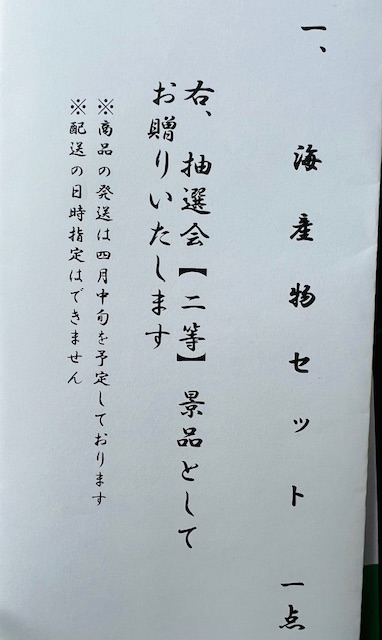 一、 海産物セット 一点
右、抽選会【二等】景品として
お贈りいたします
※商品の発送は四月中旬を予定しております
※配送の日時指定はできません